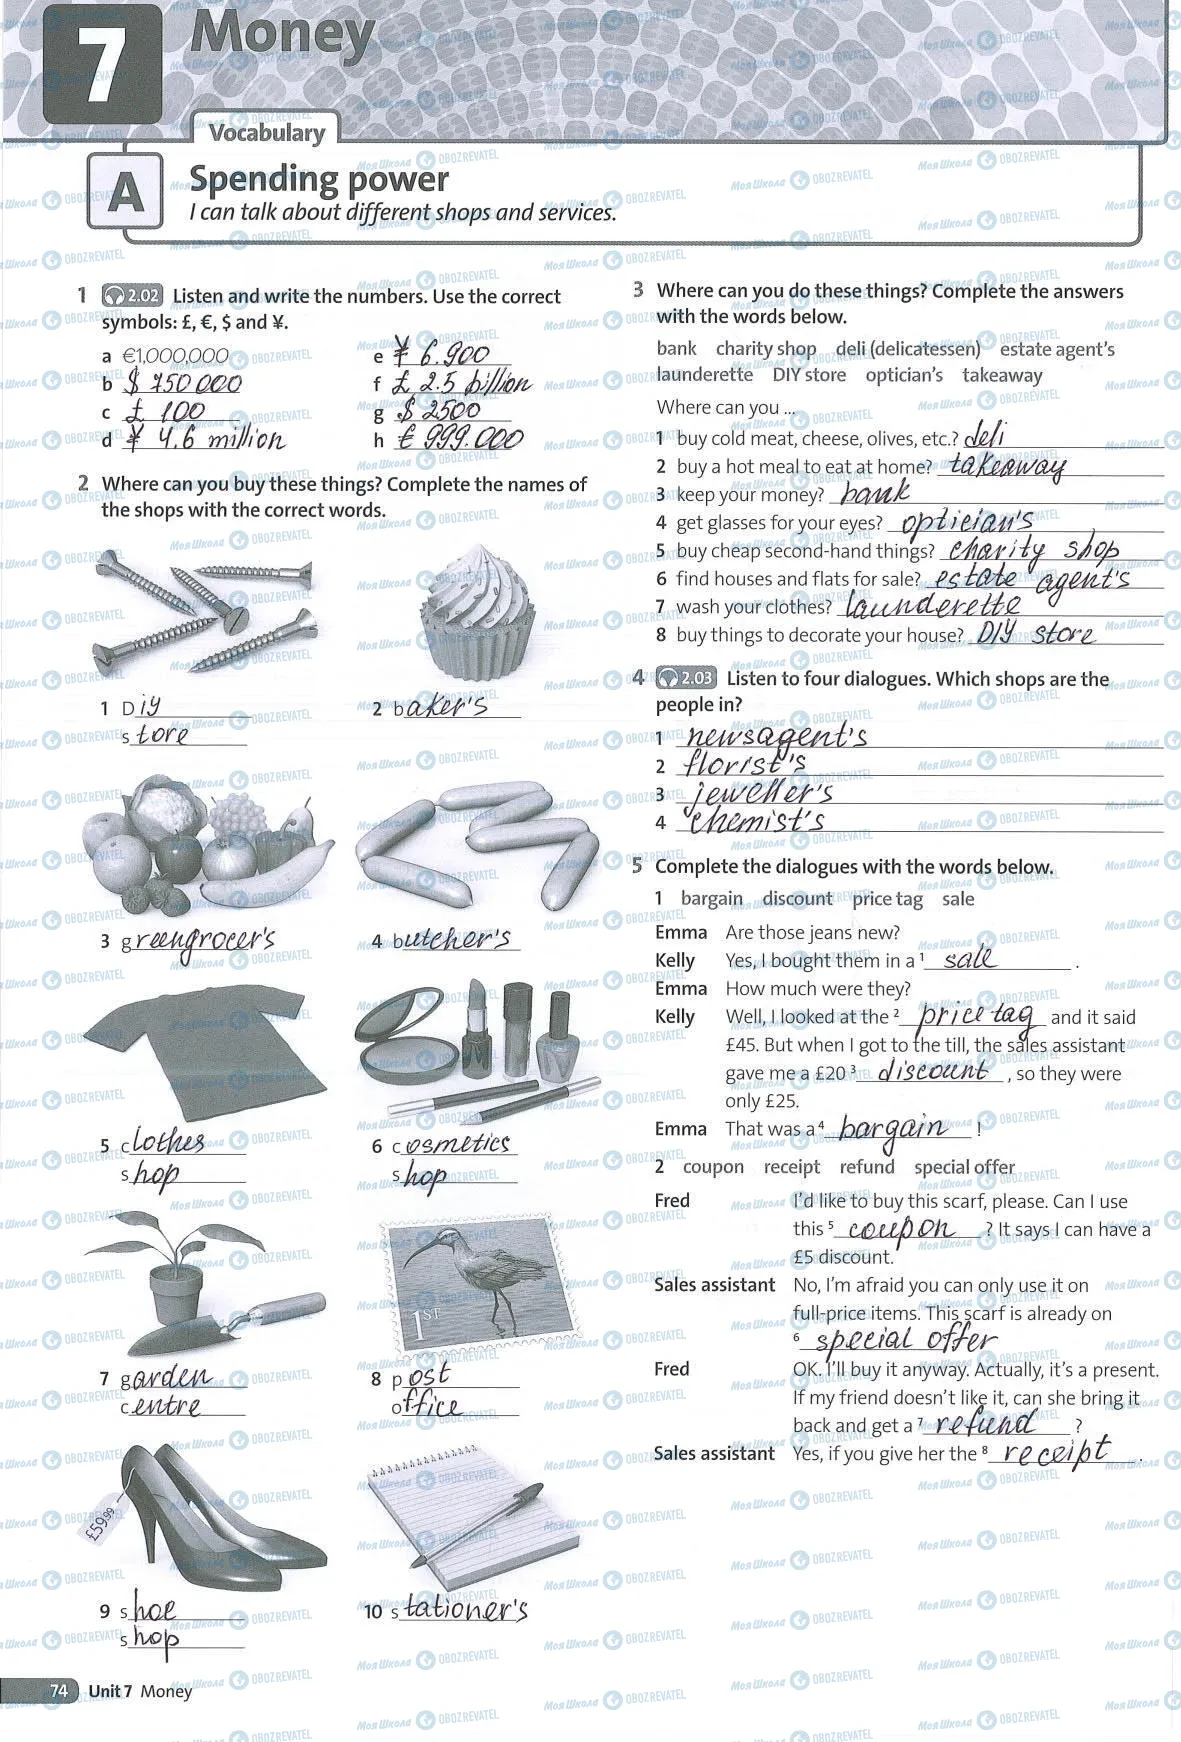 7 Money
Vocabulary
A Spending power
I can talk about different shops and services.
1 2.02 Listen and write the numbers. Use the correct
symbols: £, €, $ and ¥.
a €1,000,000
b $ 750 000
c £ 100
d ¥ 4.6 million
e ¥ 6.900
f £ 2.5 billion
g $ 2500
h € 999.000
2 Where can you buy these things? Complete the names of
the shops with the correct words.
1 Diy
store
2 baker's
3 greengrocer's
4 butcher's
5 clothes
shop
6 cosmetics
shop
7 garden
centre
1ST
8 post
office
£59.99
9 shoe
shop
10 stationer's
3 Where can you do these things? Complete the answers
with the words below.
bank charity shop deli (delicatessen) estate agent's
launderette DIY store optician's takeaway
Where can you ...
1 buy cold meat, cheese, olives, etc.? deli
2 buy a hot meal to eat at home? takeaway
3 keep your money? bank
4 get glasses for your eyes? optician's
5 buy cheap second-hand things? charity shop
6 find houses and flats for sale? estate agent's
7 wash your clothes? launderette
8 buy things to decorate your house? DIY store
4 2.03 Listen to four dialogues. Which shops are the
people in?
1 newsagent's
2 florist's
3 jeweller's
4 chemist's
5 Complete the dialogues with the words below.
1 bargain discount price tag sale
Emma Are those jeans new?
Kelly Yes, I bought them in a 1 sale .
Emma How much were they?
Kelly Well, I looked at the 2 price tag and it said
£45. But when I got to the till, the sales assistant
gave me a £20 3 discount , so they were
only £25.
Emma That was a 4 bargain !
2 coupon receipt refund special offer
Fred I'd like to buy this scarf, please. Can I use
this 5 coupon ? It says I can have a
£5 discount.
Sales assistant No, I'm afraid you can only use it on
full-price items. This scarf is already on
6 special offer
Fred OK. I'll buy it anyway. Actually, it's a present.
If my friend doesn't like it, can she bring it
back and get a 7 refund ?
Sales assistant Yes, if you give her the 8 receipt .
74 Unit 7 Money
МояШкола OBOZREVATEL